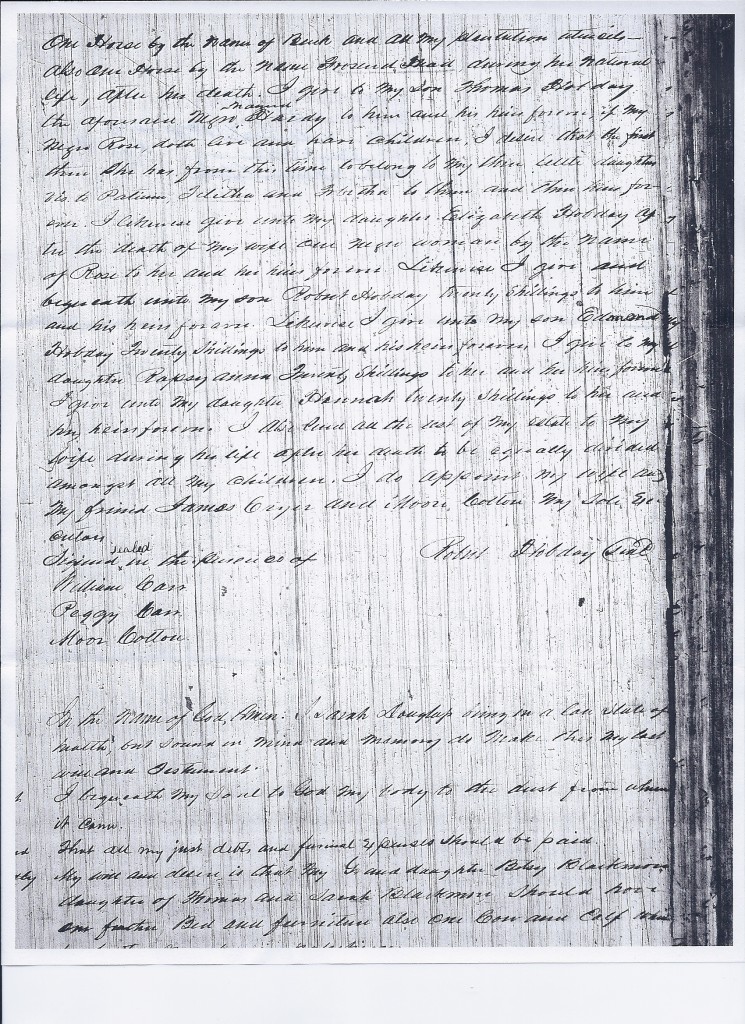 One Horse by the Name of Buck and all my plantation utensils
Also one Horse by the Name Head during her natural
life, after her death. I give to my son Thomas Hobday
the aforesaid Negro named Hardy to him and his heirs forever, if my
Negro Rose, doth live and have children, I desire that the first
three she has from this time to belong to my three little daughters
viz to Patience, Telitha and to them and their heirs for
ever. I likewise give unto my daughter Elizabeth Hobday af
ter the death of my wife one Negro woman by the Name
of Rose to her and her heirs forever. Likewise I give and
bequeath unto my son Robert Hobday twenty shillings to him
and his heirs forever. Likewise I give unto my son Edmand
Hobday Twenty Shillings to him and his heirs forever. I give to my
daughter anna Twenty shillings to her and her heirs forever
I give unto my daughter Hannah twenty shillings to her and
her heirs forever. I also lend all the rest of my estate to my
wife during her life after her death to be equally divided
amongst all my children. I do appoint my wife and
my friend James and Moore Cotton my Sole Ex
cutors
Signed sealed in the presence of Robert Hobday Seal
William Carr
Peggy Carr
Moor Cotton
In the Name of God, Amen: I Sarah Douglass being in a low State of
health, but Sound in mind and memory do make this my last
will and Testament.
I bequeath my Soul to God my body to the dust from whence
it came.
That all my just debts and funeral expenses should be paid
My will and desire is that my Granddaughter Betsy Blackmore
daughter of Thomas and Sarah Blackmore should have
one feather Bed and furniture also one Cow and Calf